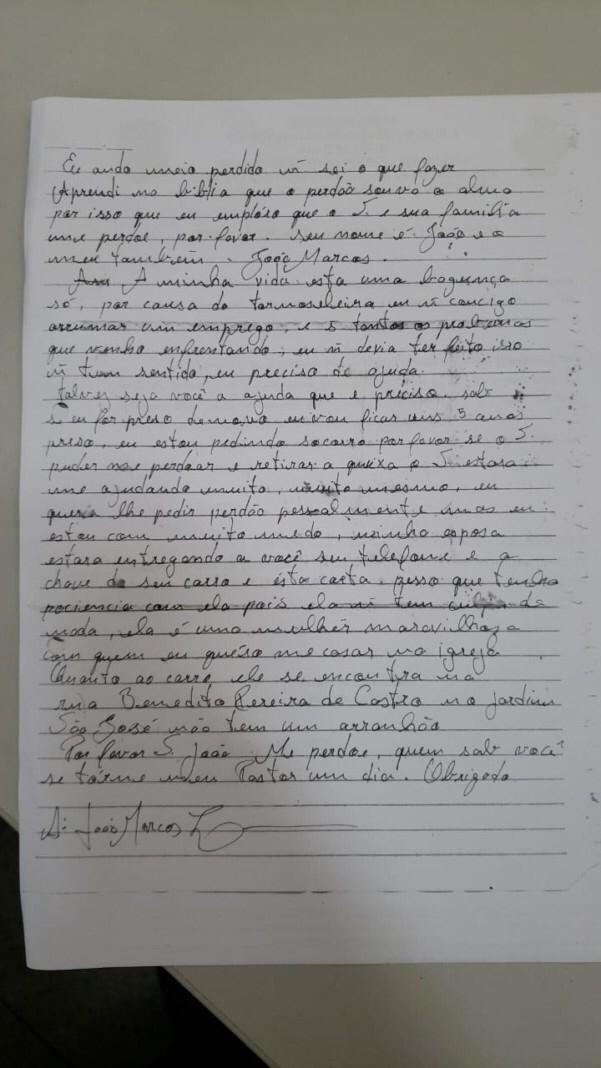 Eu ando meio perdido ñ sei o que fazer
Aprendi na biblia que o perdão sauva a alma
por isso que eu emploso que o S. e sua familia
me perdoe, por favor. seu nome é João e o
meu também. João Marcos.
A minha vida esta uma bagunça
só, por causa da tornoseleira eu ñ concigo
arrumar um emprego, e são tantos os problemas
que venho enfrentando, eu ñ devia ter feito isso
ñ tem sentido, eu preciso de ajuda.
talves seja você a ajuda que e preciso. sabe
se eu for preso denovo eu vou ficar uns 5 anos
preso, eu estou pedindo socorro por favor se o S.
puder me perdoar e retirar a queixa o S. estara
me ajudando muito, muito mesmo, eu
queria lhe pedir perdão pessoalmente mas eu
estou com muito medo, minha esposa
estara entregando a você seu telefone e a
chave do seu carro e esta carta. pesso que tenha
paciencia com ela pois ela ñ tem culpa de
nada, ela é uma mulher maravilhosa
com quem eu quéiso me casar na igreja
Quanto ao carro, ele se encontra na
rua Benedito Pereira de Castro no jardim
São José não tem um arranhão
Por favor S. João Me perdoe, quem sabe você
se tórne meu Pastor um dia. Obrigado
A: João Marcos